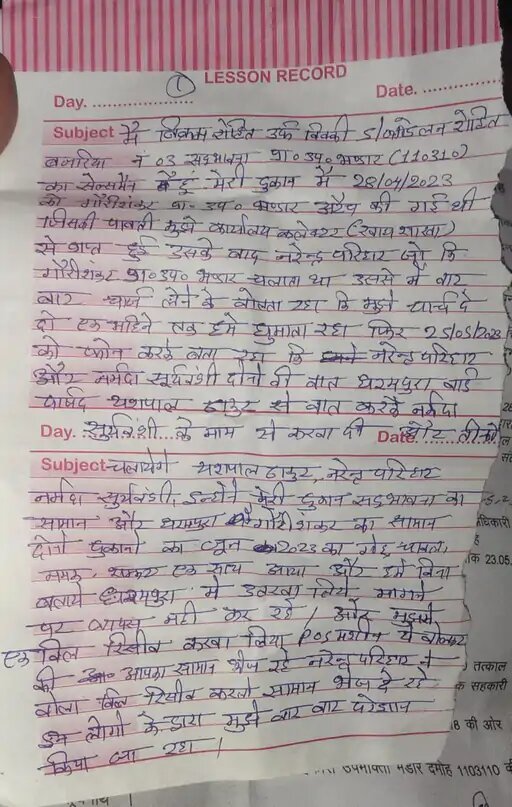 ①
LESSON RECORD
Day. Date.
Subject मैं विक्रम रोहित उर्फ विक्की S/O कोडेलन रोहित
बजरिया नं 03 सद्भावना प्रा०उप० भण्डार (110310)
का सेल्समैन हूँ मेरी दुकान में 28/04/2023
को गौरीशंकर प्रा० उप० भण्डार अटैच की गई थी
जिसकी पावती मुझे कार्यालय कलेक्टर (खाद्य शाखा)
से प्राप्त हुई उसके बाद नरेन्द्र परिहार जो कि
गौरीशंकर प्रा०उप० भण्डार चलाता था उससे में बार
बार चार्ज लेने के बोलता रहा कि मुझे चार्ज दे
दो एक महिने तक हमे घुमाता रहा फिर 25/05/2023
को फोन करके बता रहा कि नरेन्द्र परिहार
और नर्मदा सूर्यवंशी दोनो की बात धरमपुरा वार्ड
पार्षद यशपाल ठाकुर से बात करके नर्मदा
Day. सूर्यवंशी के नाम से करवा दी Date. और तीनो
Subject चलायेगे यशपाल ठाकुर, नरेन्द्र परिहार
नर्मदा सूर्यवंशी, इन्होने मेरी दुकान सद्भावना का
सामान और धरमपुरा गौरीशंकर का सामान
दोनो दुकानो का जून 2023 का गेहू चावल,
नमक, शक्कर एक साथ आया और हमे बिना
बताये धरमपुरा में उतरवा लिये मागने
पर वापस नही कर रहे / और मुझसे
एक बिल रिसीव करवा लिया POS मशीन ये बोलकर
की आपका सामान भेज रहे नरेन्द्र परिहार ने
बोला बिल रिसीव करलो सामान भेज दे रहे
इन लोगो के द्वारा मुझे बार बार परेशान
किया जा रहा /
धिकारी
है
क 23.05.
तत्काल
क सहकारी
18 की ओर
उपभोक्ता भंडार दमोह 1103110 की